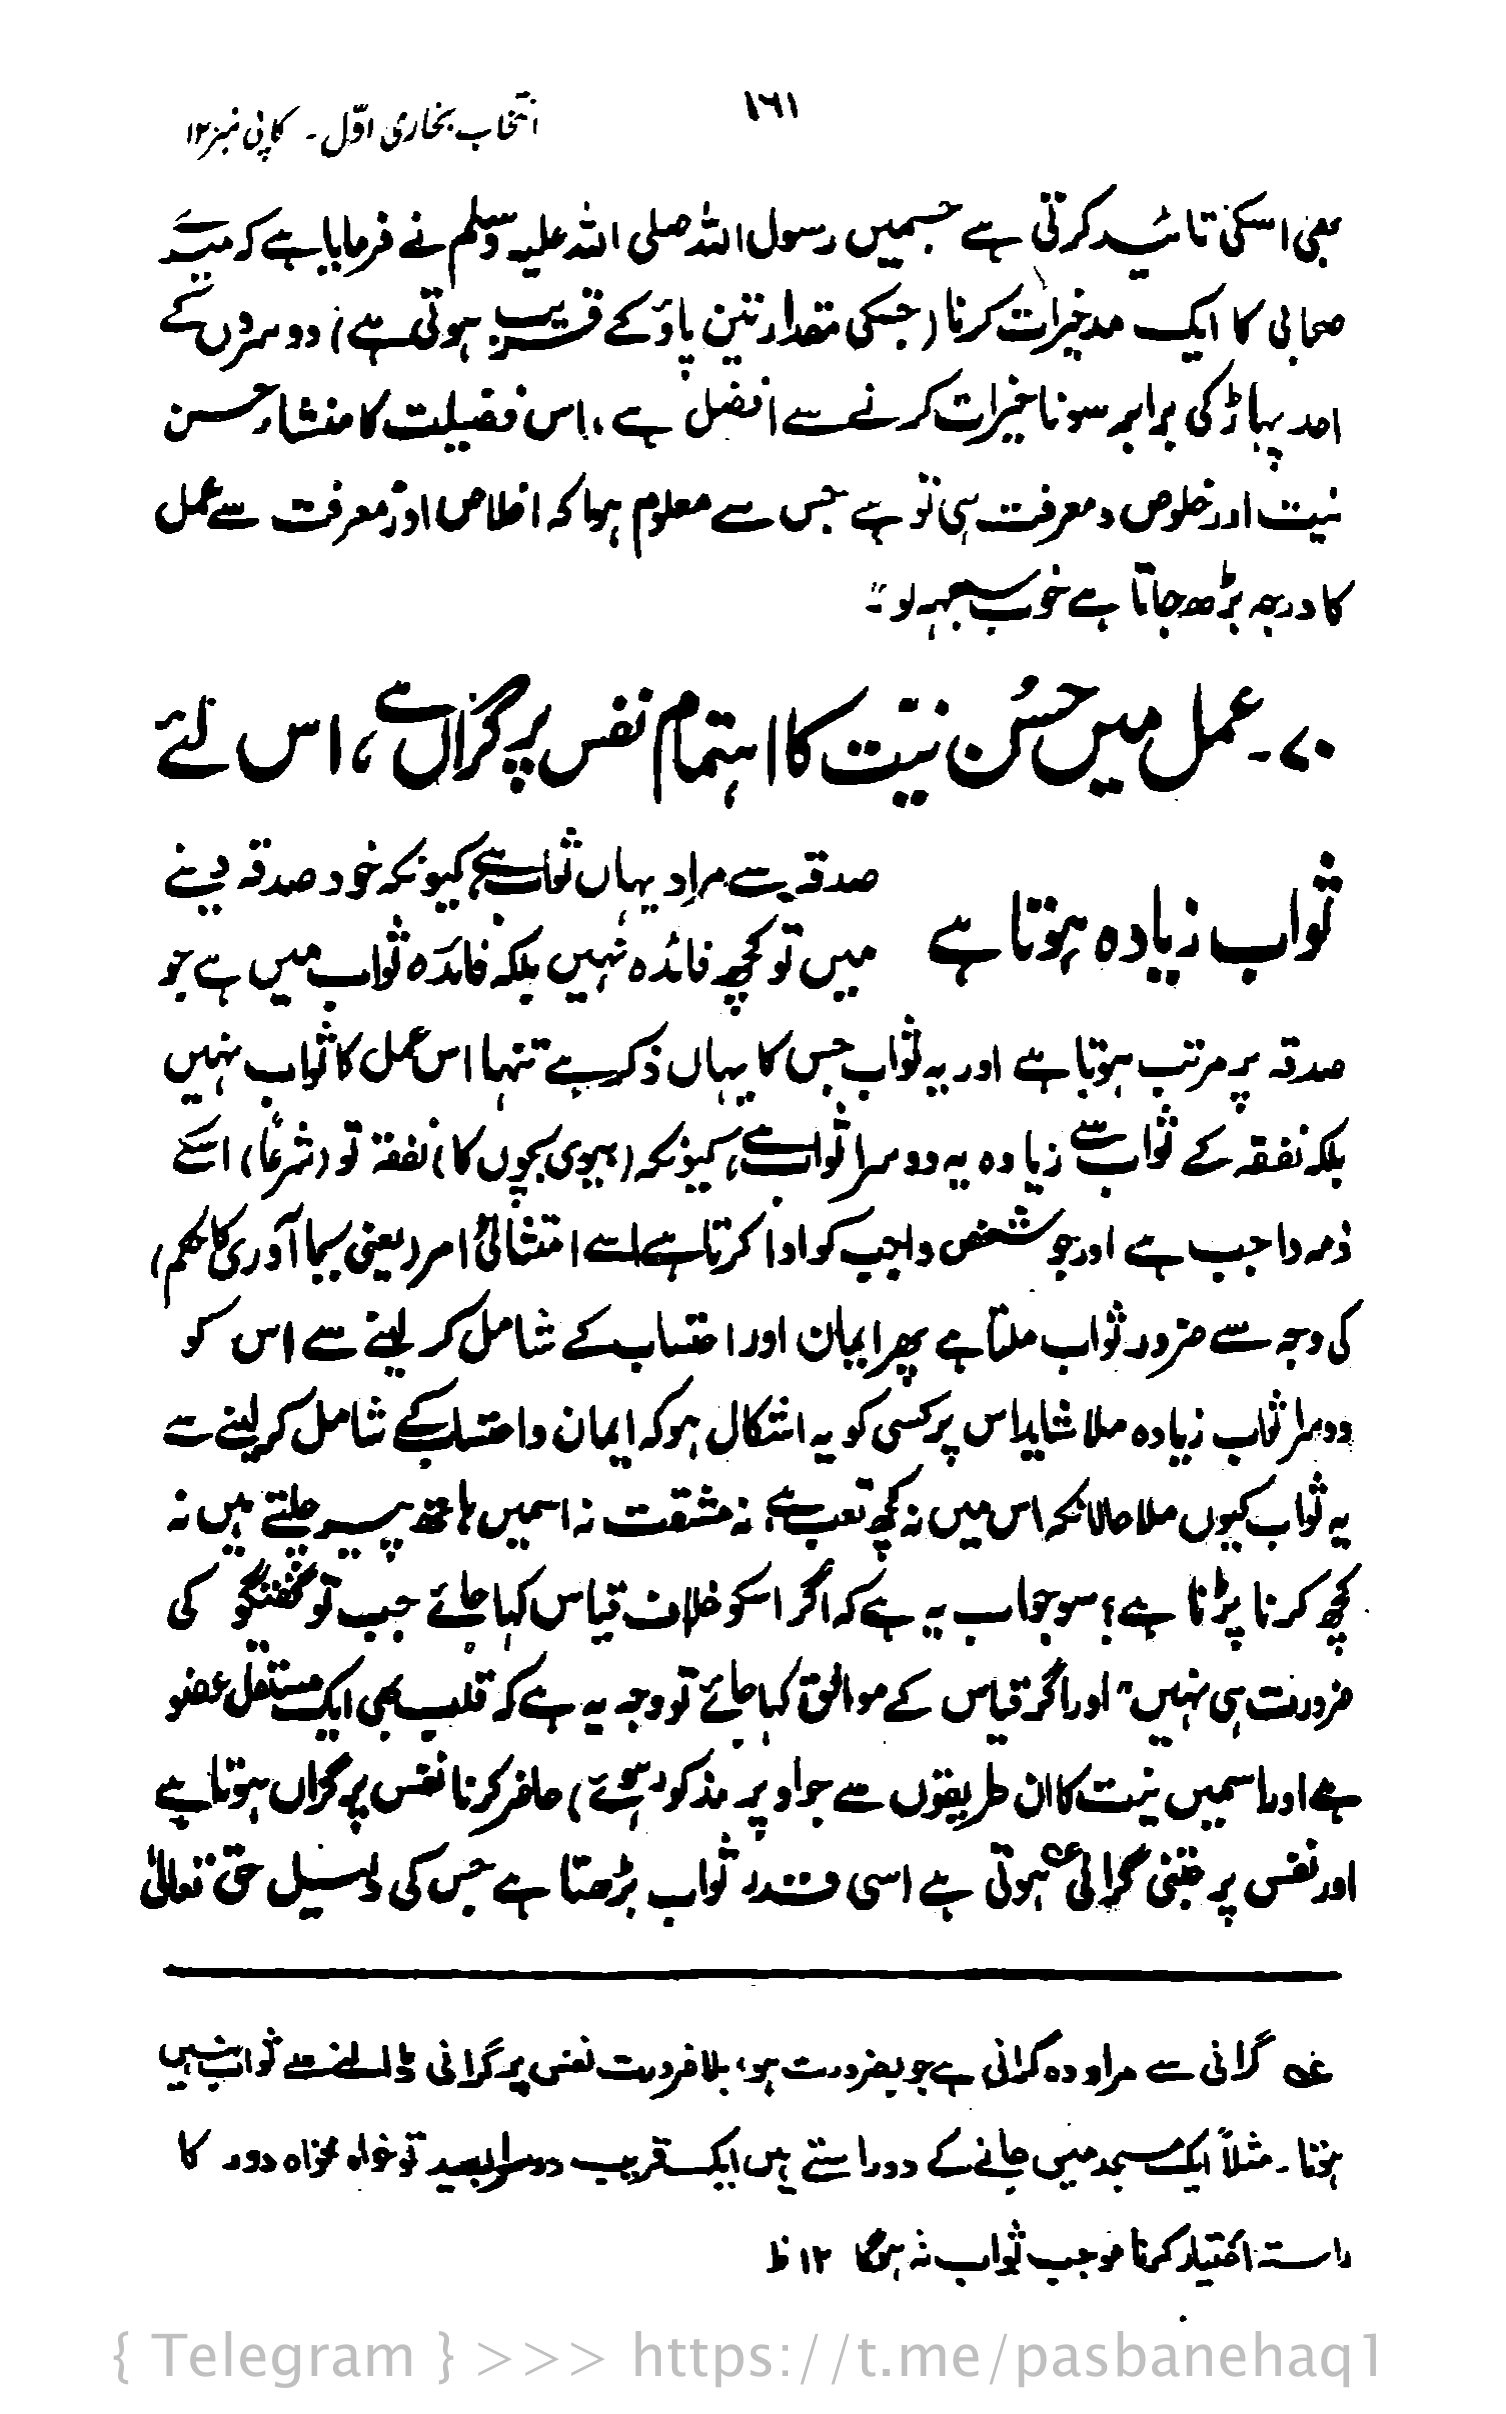 ۱۶۱
انتخاب بخاری اوّل - کاپی نمبر ۱۲
بھی اسکی تائید کرتی ہے جسمیں رسول اللہ صلی اللہ علیہ وسلم نے فرمایا ہے کہ میرے
صحابی کا ایک مد خیرات کرنا (جسکی مقدار تین پاؤ کے قریب ہوتی ہے) دوسروں کے
احد پہاڑ کی برابر سونا خیرات کرنے سے افضل ہے، اس فضیلت کا منشاء حسن
نیت اور خلوص و معرفت ہی تو ہے جس سے معلوم ہوا کہ اخلاص اور معرفت سے عمل
کا درجہ بڑھ جاتا ہے خوب سمجھ لو"۔
۷۰۔ عمل میں حسُن نیّت کا اہتمام نفس پر گراں ہے، اس لئے
ثواب زیادہ ہوتا ہے
صدقہ سے مراد یہاں ثواب ہے کیونکہ خود صدقہ دینے
میں تو کچھ فائدہ نہیں بلکہ فائدہ ثواب میں ہے جو
صدقہ پر مرتب ہوتا ہے اور یہ ثواب جس کا یہاں ذکر ہے تنہا اس عمل کا ثواب نہیں
بلکہ نفقہ کے ثواب سے زیادہ یہ دوسرا ثواب ہے، کیونکہ (بیوی بچوں کا) نفقہ تو (شرعاً) اسکے
ذمہ واجب ہے اور جو شخص واجب کو ادا کرتا ہے اسے امتثالِ امر (یعنی بجا آوری کا حکم)
کی وجہ سے ضرور ثواب ملتا ہے پھر ایمان اور احتساب کے شامل کر لینے سے اس کو
دوسرا ثواب زیادہ ملا شاید اس پر کسی کو یہ اشکال ہو کہ ایمان و احتساب کے شامل کر لینے سے
یہ ثواب کیوں ملا حالانکہ اس میں نہ کچھ تعب ہے، نہ مشقت نہ اسمیں ہاتھ پیر چلتے ہیں نہ
کچھ کرنا پڑتا ہے؟ سو جواب یہ ہے کہ اگر اسکو خلاف قیاس کہا جائے جب تو گفتگو کی
ضرورت ہی نہیں" اور اگر قیاس کے موافق کہا جائے تو وجہ یہ ہے کہ قلب بھی ایک مستقل عضو
ہے اور اسمیں نیت کا ان طریقوں سے جو اوپر مذکور ہوئے) حاضر کرنا نفس پر گراں ہوتا ہے
اور نفس پر جتنی گرانی عہ ہوتی ہے اسی قدر ثواب بڑھتا ہے جس کی دلیل حق تعالیٰ
عہ گرانی سے مراد وہ گرانی ہے جو بضرورت ہو، بلا ضرورت نفس پر گرانی ڈالنے سے ثواب نہیں
ہوتا۔ مثلاً ایک مسجد میں جانے کے دو راستے ہیں ایک قریب دوسرا بعید تو خواہ مخواہ دور کا
راستہ اختیار کرنا موجب ثواب نہ ہوگا ۱۲ ظ
{ Telegram } >>> https://t.me/pasbanehaq1